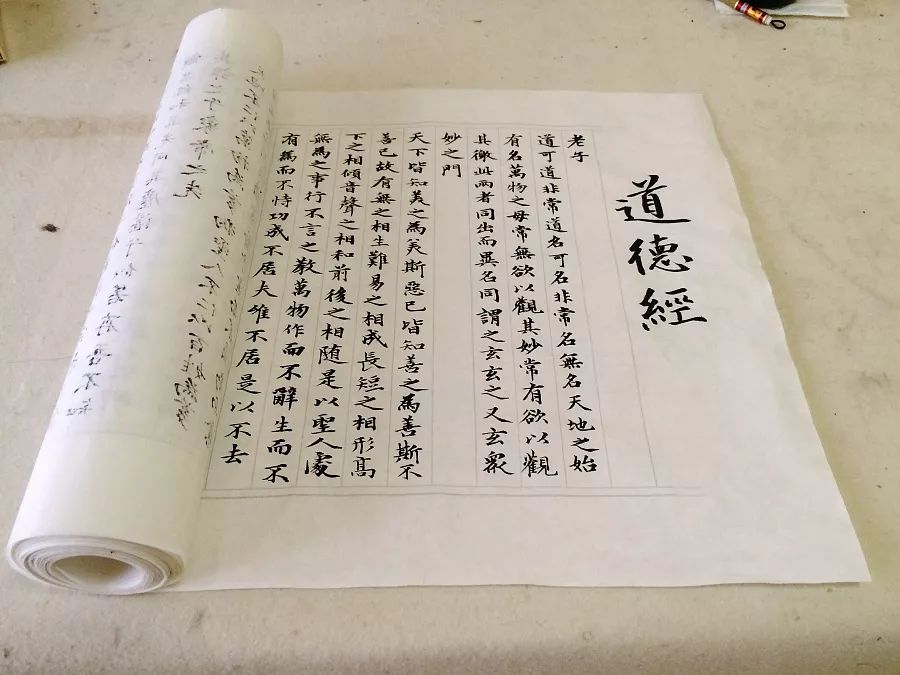 道德經
老子
道可道非常道名可名非常名無名天地之始
有名萬物之母常無欲以觀其妙常有欲以觀
其徼此兩者同出而異名同謂之玄玄之又玄眾
妙之門
天下皆知美之為美斯惡已皆知善之為善斯不
善已故有無之相生難易之相成長短之相形高
下之相傾音聲之相和前後之相随是以聖人處
無為之事行不言之教萬物作而不辭生而不
有為而不恃功成不居夫唯不居是以不去
象帝之先